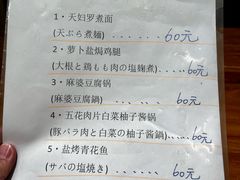 1・天妇罗煮面
(天ぷら煮麺) ...... 60元
2・萝卜盐焗鸡腿
(大根と鶏もも肉の塩麹煮) ... 60元
3・麻婆豆腐锅
(麻婆豆腐鍋) ...... 60元
4・五花肉片白菜柚子酱锅
(豚バラ肉と白菜の柚子醬鍋) ... 60元
5・盐烤青花鱼
(サバの塩焼き) ...... 60元